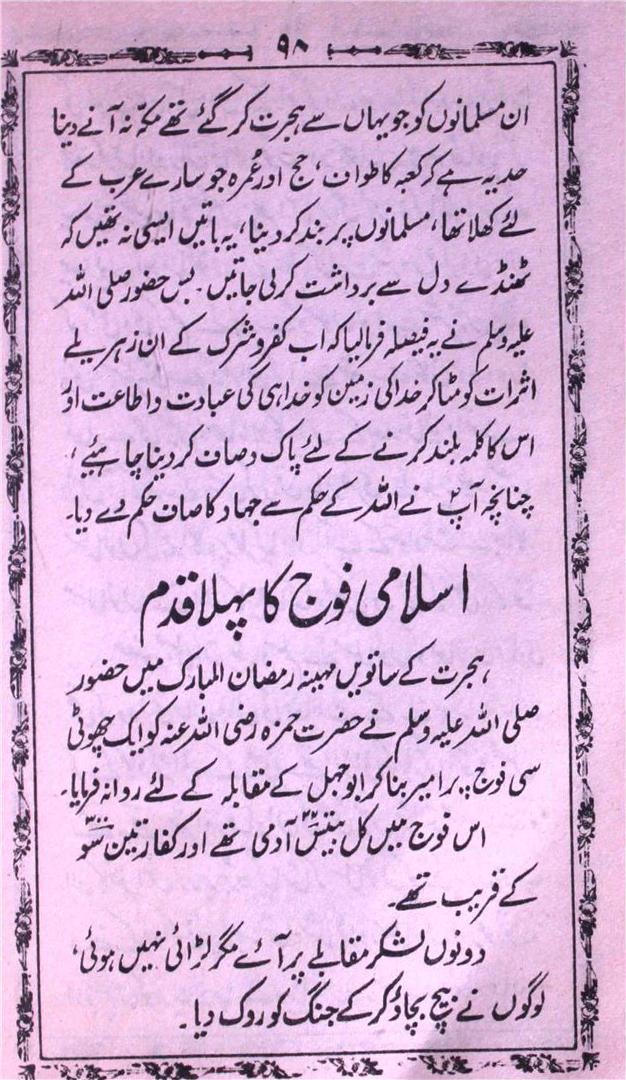 ۹۸
ان مسلمانوں کو جو یہاں سے ہجرت کر گئے تھے مکہ نہ آنے دینا
حد یہ ہے کہ کعبہ کا طواف، حج اور عُمرہ جو سارے عرب کے
لئے کھلا تھا، مسلمانوں پر بند کر دینا، یہ باتیں ایسی نہ تھیں کہ
ٹھنڈے دل سے برداشت کر لی جاتیں۔ بس حضور صلی اللہ
علیہ وسلم نے یہ فیصلہ فرمالیا کہ اب کفر و شرک کے ان زہریلے
اثرات کو مٹا کر خدا کی زمین کو خدا ہی کی عبادت و اطاعت اور
اس کا کلمہ بلند کرنے کے لئے پاک و صاف کر دینا چاہیے،
چنانچہ آپؐ نے اللہ کے حکم سے جہاد کا صاف حکم دے دیا۔
اسلامی فوج کا پہلا قدم
ہجرت کے ساتویں مہینہ رمضان المبارک میں حضور
صلی اللہ علیہ وسلم نے حضرت حمزہ رضی اللہ عنہ کو ایک چھوٹی
سی فوج پر امیر بنا کر ابوجہل کے مقابلہ کے لئے روانہ فرمایا۔
اس فوج میں کل تیس۳۰ آدمی تھے اور کفار تین سو۳۰۰
کے قریب تھے۔
دونوں لشکر مقابلے پر آئے مگر لڑائی نہیں ہوئی،
لوگوں نے بیچ بچاؤ کر کے جنگ کو روک دیا۔